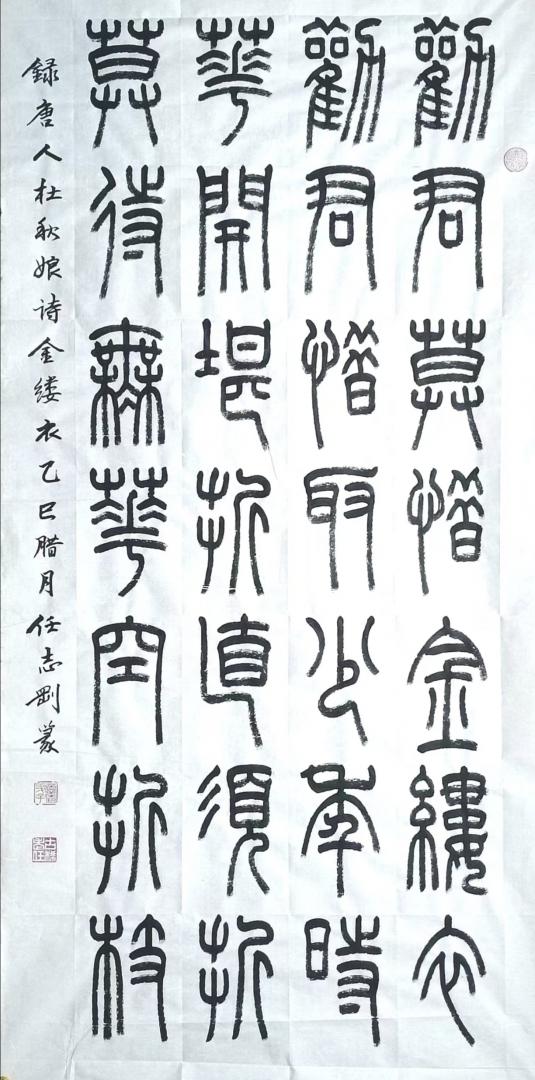 勸君莫惜金縷衣
勸君惜取少年時
華開堪折直須折
莫待無華空折枝
録唐人杜秋娘诗金缕衣乙巳腊月任志刚篆